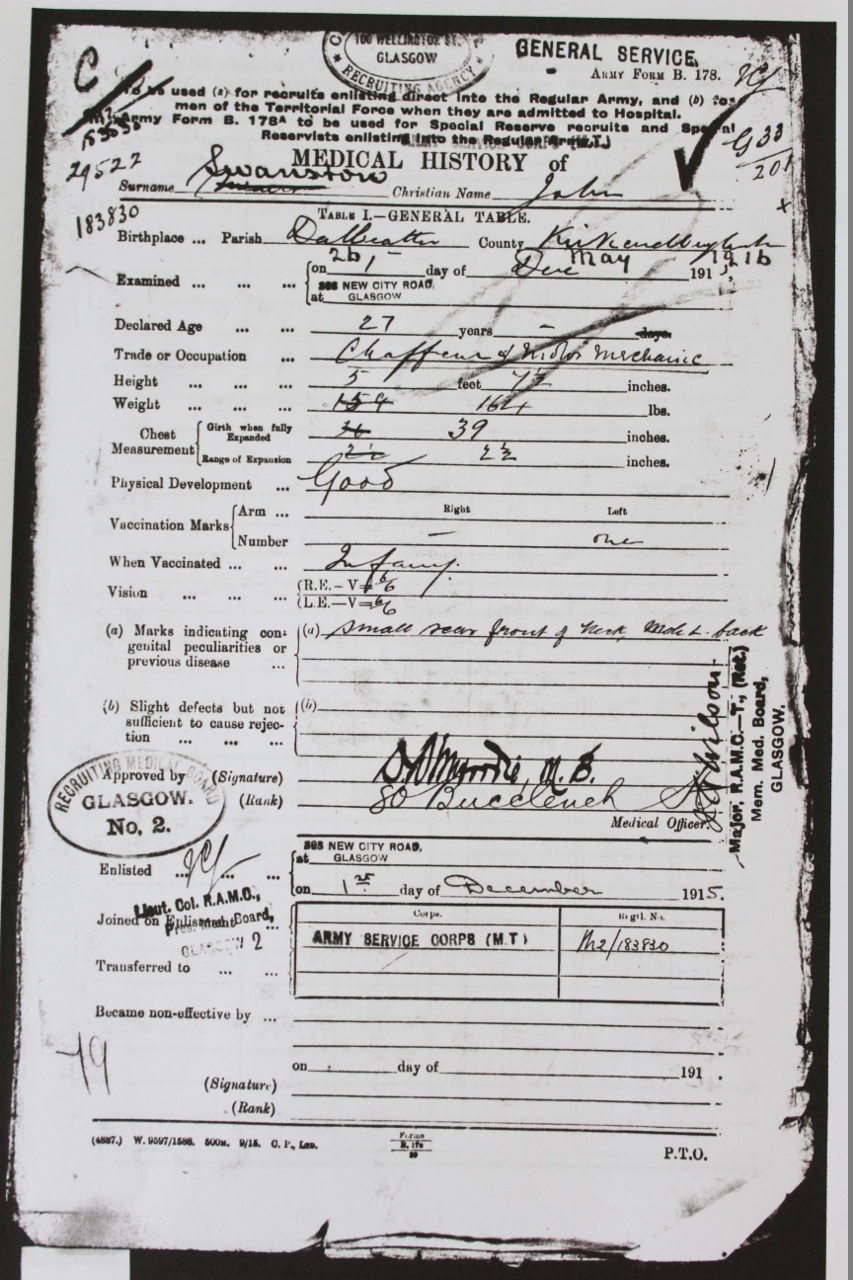 100 WELLINGTON ST.
GLASGOW
RECRUITING AGENCY
GENERAL SERVICE.
ARMY FORM B. 178.
C
To be used (a) for recruits enlisting direct into the Regular Army, and (b) for
men of the Territorial Force when they are admitted to Hospital.
Army Form B. 178A to be used for Special Reserve recruits and Special
Reservists enlisting into the Regular Army.)
G 33
201
29522
MEDICAL HISTORY of
Surname Swanston Christian Name John
183830
TABLE I.—GENERAL TABLE.
Birthplace ... Parish Dalbeattie County Kirkcudbright
Examined ... ... ... on 26 day of Dec May 191 1916
at 302 NEW CITY ROAD, GLASGOW
Declared Age ... ... 27 years — days.
Trade or Occupation ... Chaffeur & Motor Mechanic
Height ... ... ... 5 feet 7½ inches.
Weight ... ... ... 159 164 lbs.
Chest Measurement Girth when fully Expanded 36 39 inches.
Range of Expansion 2½ inches.
Physical Development ... Good
Vaccination Marks Arm ... Right Left
Number — one
When Vaccinated ... ... Infancy.
Vision ... ... ... R.E.—V= 6/6
L.E.—V= 6/6
(a) Marks indicating con-
genital peculiarities or
previous disease ...
(a) Small scar front of Neck, Mole L. back
(b) Slight defects but not
sufficient to cause rejec-
tion ... ... ...
(b)
Wilson
Major, R.A.M.C.—T., (Ret.)
Mem. Med. Board,
GLASGOW.
RECRUITING MEDICAL BOARD
GLASGOW.
No. 2.
Approved by (Signature) M.B.
(Rank) 80 Buccleuch St
Medical Officer.
Enlisted ... ... at NEW CITY ROAD, GLASGOW
on 1st day of December 1915.
Lieut. Col. R.A.M.C.,
President Board,
GLASGOW 2
Joined on Enlistment ...
Corps. Regtl. No.
ARMY SERVICE CORPS (M.T) M2/183830
Transferred to ... ...
Became non-effective by ...
79
on day of 191 .
(Signature)
(Rank)
(4887.) W. 9597/1588. 500M. 9/15. C. P., LTD.
Forms
B. 178
P.T.O.